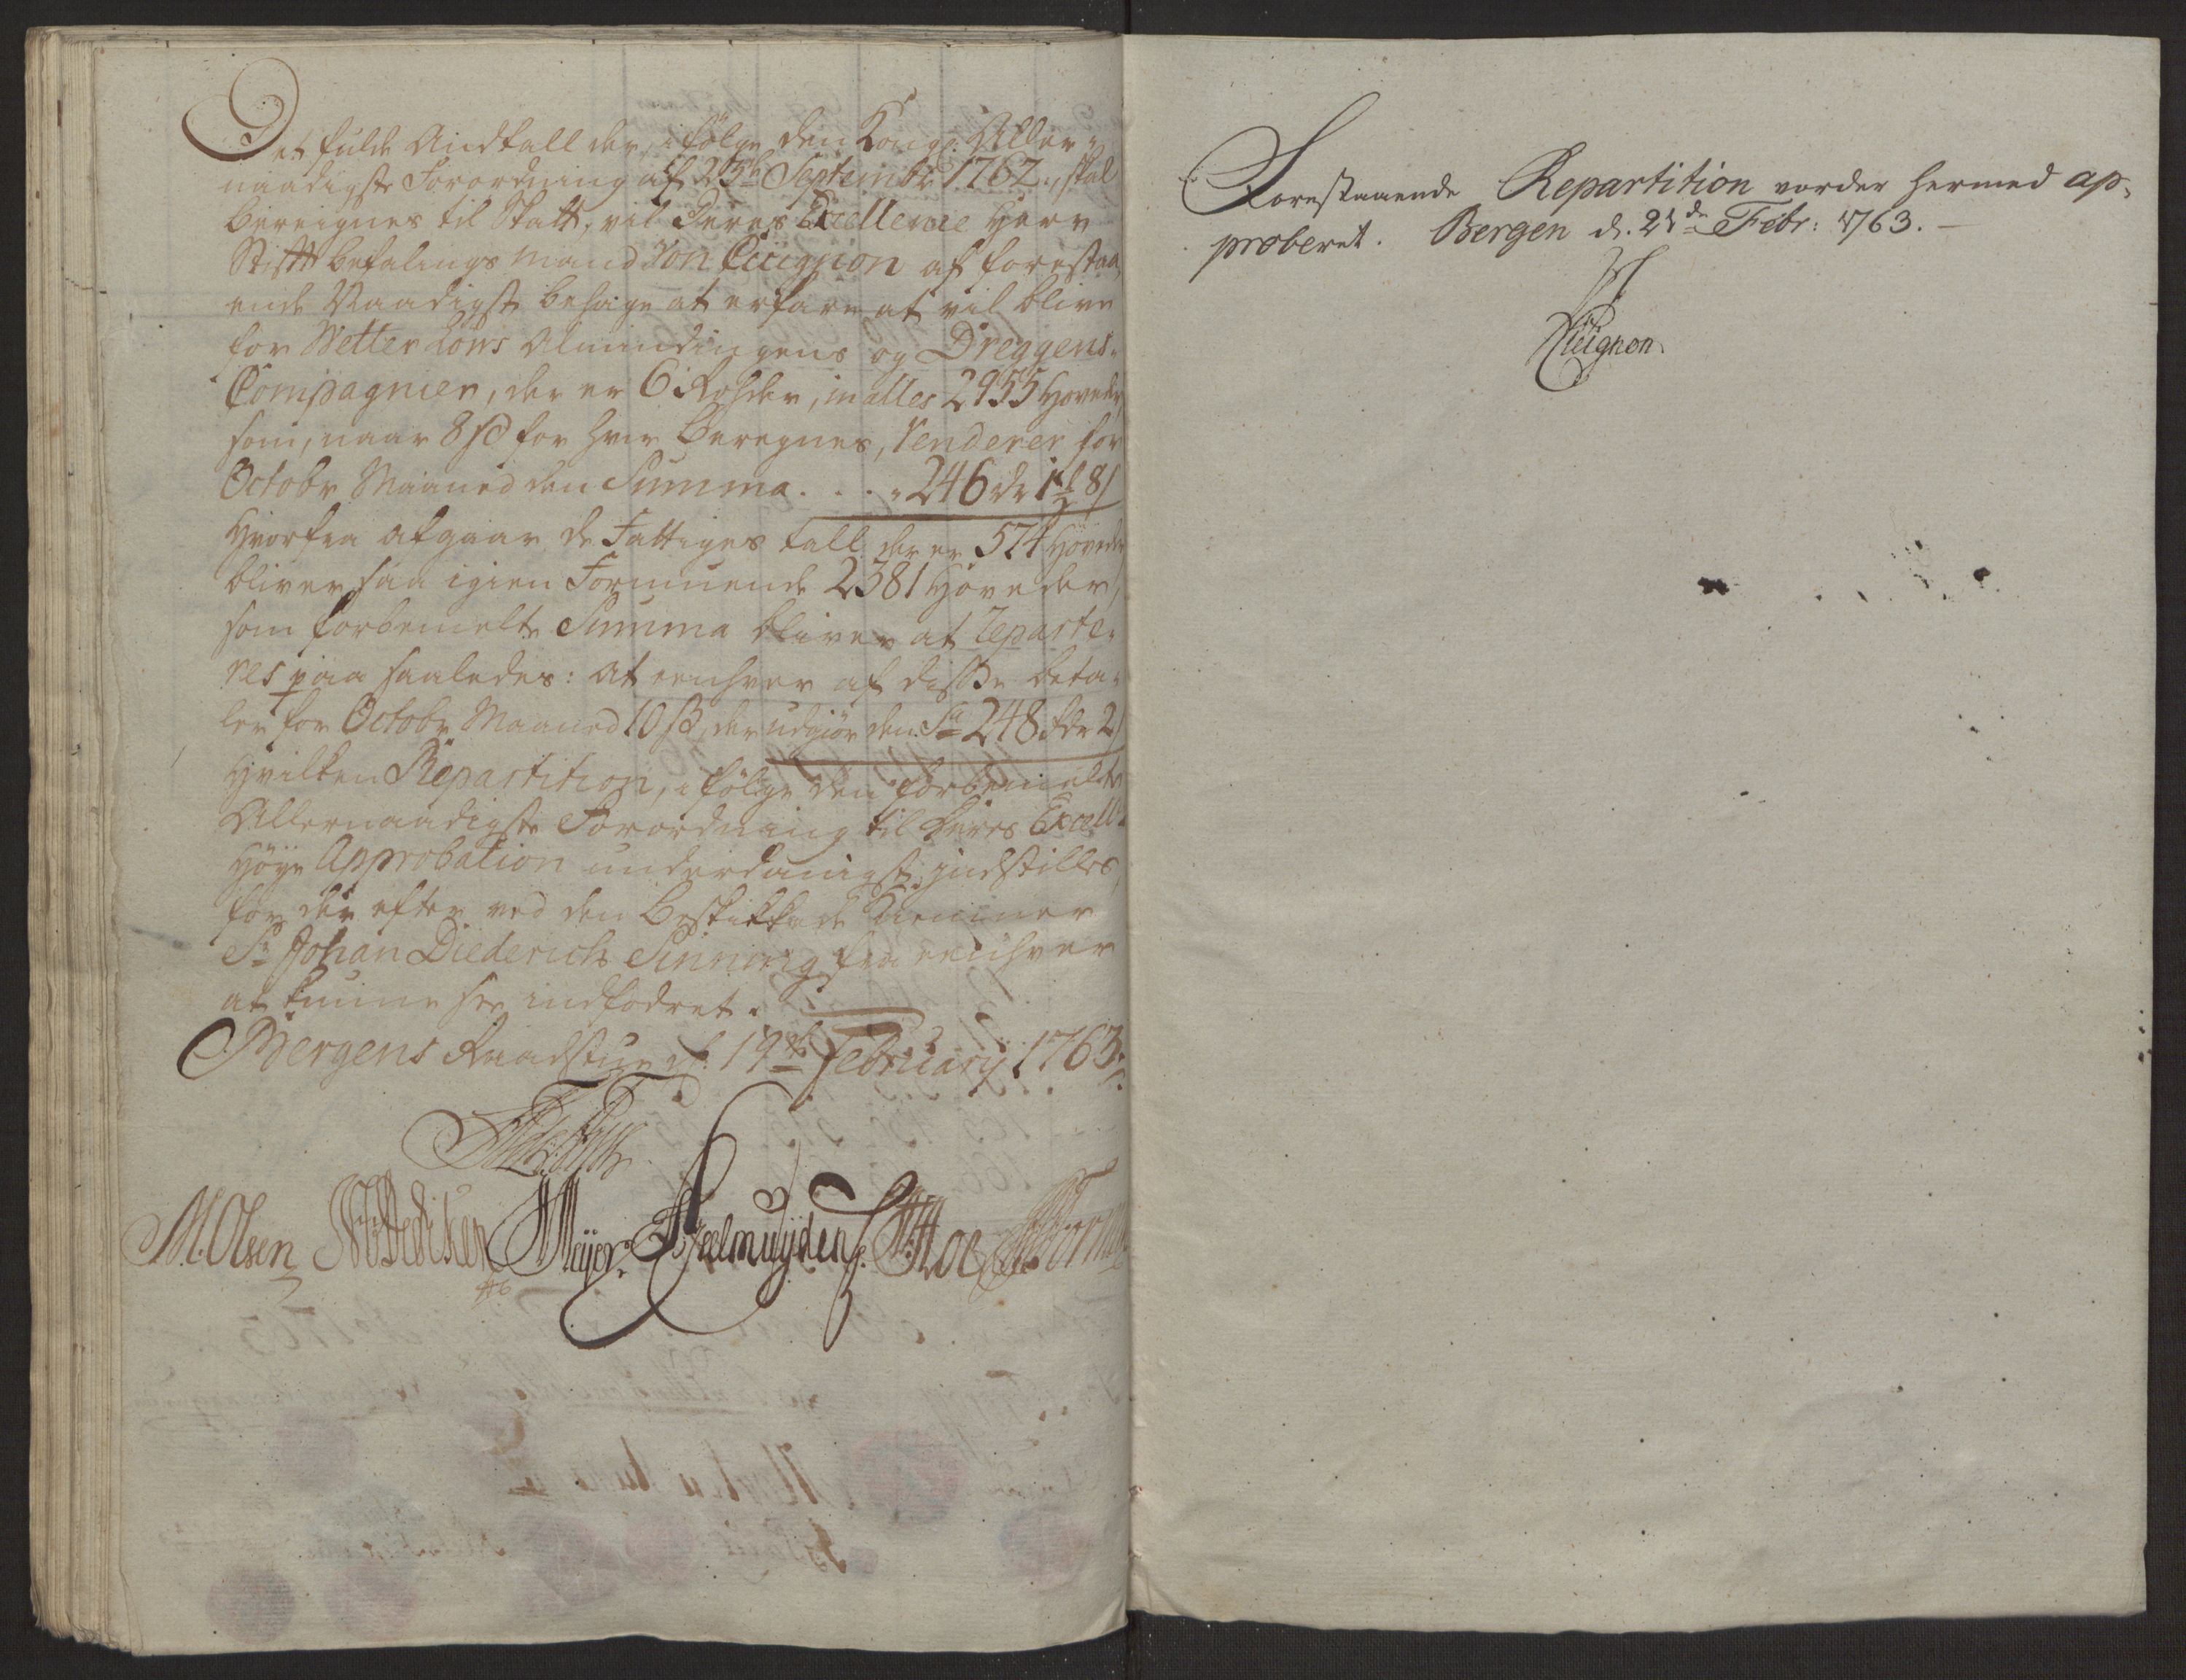 Det fulde Andtall der, ifølge den Kongl. Aller-
naadigste Forordning af 23de Septembr 1762., skal
beregnes til Skatt, vil Deres Excellence Herr
Stiftbefalings mand von Cicignon af forestaa-
ende Naadigst behage at erfare at vil blive
for Wetterlöws Alminding ens og Dreggens-
Compagnier, der er 6 Rohder, in alles 2955 Hoveder,
som, naar 8 sk for hver beregnes, Renderer for
Octobr Maaned den Summa . . . . 246 rdr 1 mk 8 s
Hvorfra afgaar de Fattiges tall der er 574 Hoveder
bliver saa igien Formuende 2381 Hoveder,
som forbemelte Summa bliver at reparte-
res paa saaledes: At eenhver af disse beta-
ler for Octobr Maaned 10 s, der udgiør den Sa 248 rdr 2 s
Hvilken Repartition, ifølge den forbemelte
Allernaadigste Forordning til Deres Excell.
Høye Approbation underdanigst indstilles,
for der efter ved den beskikkede Kemner
Sr Johan Diederich Sinning fra eenhver
at kunne see indfodret.
Bergens Raadstue d. 19de February 1763.
M. Olsen Meyer Geelmuyden
Forestaaende Repartition vorder hermed ap-
proberet. Bergen d. 21de Febr: 1763.
Cicignon